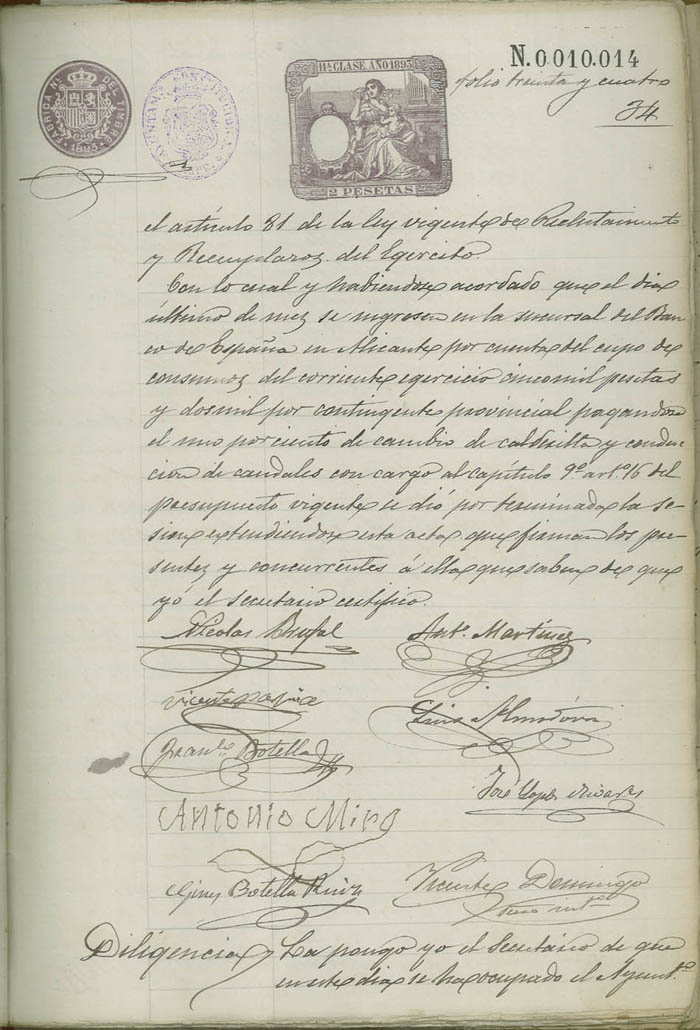 FABRICA NAL DEL TIMBRE
1893
AYUNTAMTO CONSTITUCIONAL
11ª CLASE AÑO 1893
2 PESETAS
N.0.010.014
folio treinta y cuatro
34
el artículo 31 de la ley vigente de Reclutamiento
y Reemplazos del Egercito.
Con lo cual y habiendose acordado que el dia
último de mes se ingresen en la sucursal del Ban-
co de España en Alicante por cuenta del cupo de
consumos del corriente egercicio cinco mil pesetas
y dos mil por contingente provincial pagandose
el uno por ciento de cambio de calderilla y conduc-
cion de caudales con cargo al capítulo 9º artº 16 del
presupuesto vigente se dió por terminada la se-
sion extendiendose esta acta que firman los pre-
sentes y concurrentes á ella que saben de que
yó el Secretario certifico.
Nicolas Brufal
Antº Martinez
Vicente
Luis Almodóvar
Franco Botella
José Lopez
Antonio Miro
Gines Botella
Vicente Domingo
Srio intº
Diligencia, La pongo yo el Secretario de que
en este dia se ha ocupado el Ayuntº